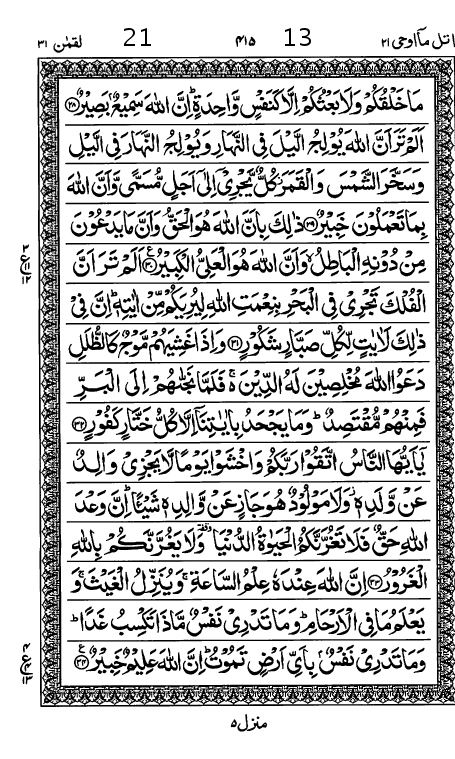 اتل مآاوحی ۲۱ 13 ۴۱۵ 21 لقمٰن ۳۱
مَا خَلْقُكُمْ وَلَا بَعْثُكُمْ اِلَّا كَنَفْسٍ وَّاحِدَةٍ ؕ اِنَّ اللّٰهَ سَمِيْعٌۢ بَصِيْرٌ ﴿۲۸﴾
اَلَمْ تَرَ اَنَّ اللّٰهَ يُوْلِجُ الَّيْلَ فِى النَّهَارِ وَيُوْلِجُ النَّهَارَ فِى الَّيْلِ
وَسَخَّرَ الشَّمْسَ وَالْقَمَرَ ؗ كُلٌّ يَّجْرِىْۤ اِلٰٓى اَجَلٍ مُّسَمًّى وَّاَنَّ اللّٰهَ
بِمَا تَعْمَلُوْنَ خَبِيْرٌ ﴿۲۹﴾ ذٰلِكَ بِاَنَّ اللّٰهَ هُوَ الْحَقُّ وَاَنَّ مَا يَدْعُوْنَ
مِنْ دُوْنِهِ الْبَاطِلُ ۙ وَاَنَّ اللّٰهَ هُوَ الْعَلِىُّ الْكَبِيْرُ ﴿۳۰﴾ اَلَمْ تَرَ اَنَّ
الْفُلْكَ تَجْرِىْ فِى الْبَحْرِ بِنِعْمَتِ اللّٰهِ لِيُرِيَكُمْ مِّنْ اٰيٰتِهٖ ؕ اِنَّ فِىْ
ذٰلِكَ لَاٰيٰتٍ لِّكُلِّ صَبَّارٍ شَكُوْرٍ ﴿۳۱﴾ وَاِذَا غَشِيَهُمْ مَّوْجٌ كَالظُّلَلِ
دَعَوُا اللّٰهَ مُخْلِصِيْنَ لَهُ الدِّيْنَ ۚ۬ فَلَمَّا نَجّٰٮهُمْ اِلَى الْبَرِّ
فَمِنْهُمْ مُّقْتَصِدٌ ؕ وَمَا يَجْحَدُ بِاٰيٰتِنَاۤ اِلَّا كُلُّ خَتَّارٍ كَفُوْرٍ ﴿۳۲﴾
يٰۤاَيُّهَا النَّاسُ اتَّقُوْا رَبَّكُمْ وَاخْشَوْا يَوْمًا لَّا يَجْزِىْ وَالِدٌ
عَنْ وَّلَدِهٖ ؗ وَلَا مَوْلُوْدٌ هُوَ جَازٍ عَنْ وَّالِدِهٖ شَيْـًٔا ؕ اِنَّ وَعْدَ
اللّٰهِ حَقٌّ فَلَا تَغُرَّنَّكُمُ الْحَيٰوةُ الدُّنْيَا ۥ وَلَا يَغُرَّنَّكُمْ بِاللّٰهِ
الْغَرُوْرُ ﴿۳۳﴾ اِنَّ اللّٰهَ عِنْدَهٗ عِلْمُ السَّاعَةِ ۚ وَيُنَزِّلُ الْغَيْثَ ۚ وَ
يَعْلَمُ مَا فِى الْاَرْحَامِ ؕ وَمَا تَدْرِىْ نَفْسٌ مَّاذَا تَكْسِبُ غَدًا ؕ
وَمَا تَدْرِىْ نَفْسٌۢ بِاَىِّ اَرْضٍ تَمُوْتُ ؕ اِنَّ اللّٰهَ عَلِيْمٌ خَبِيْرٌ ﴿۳۴﴾
منزل ۵